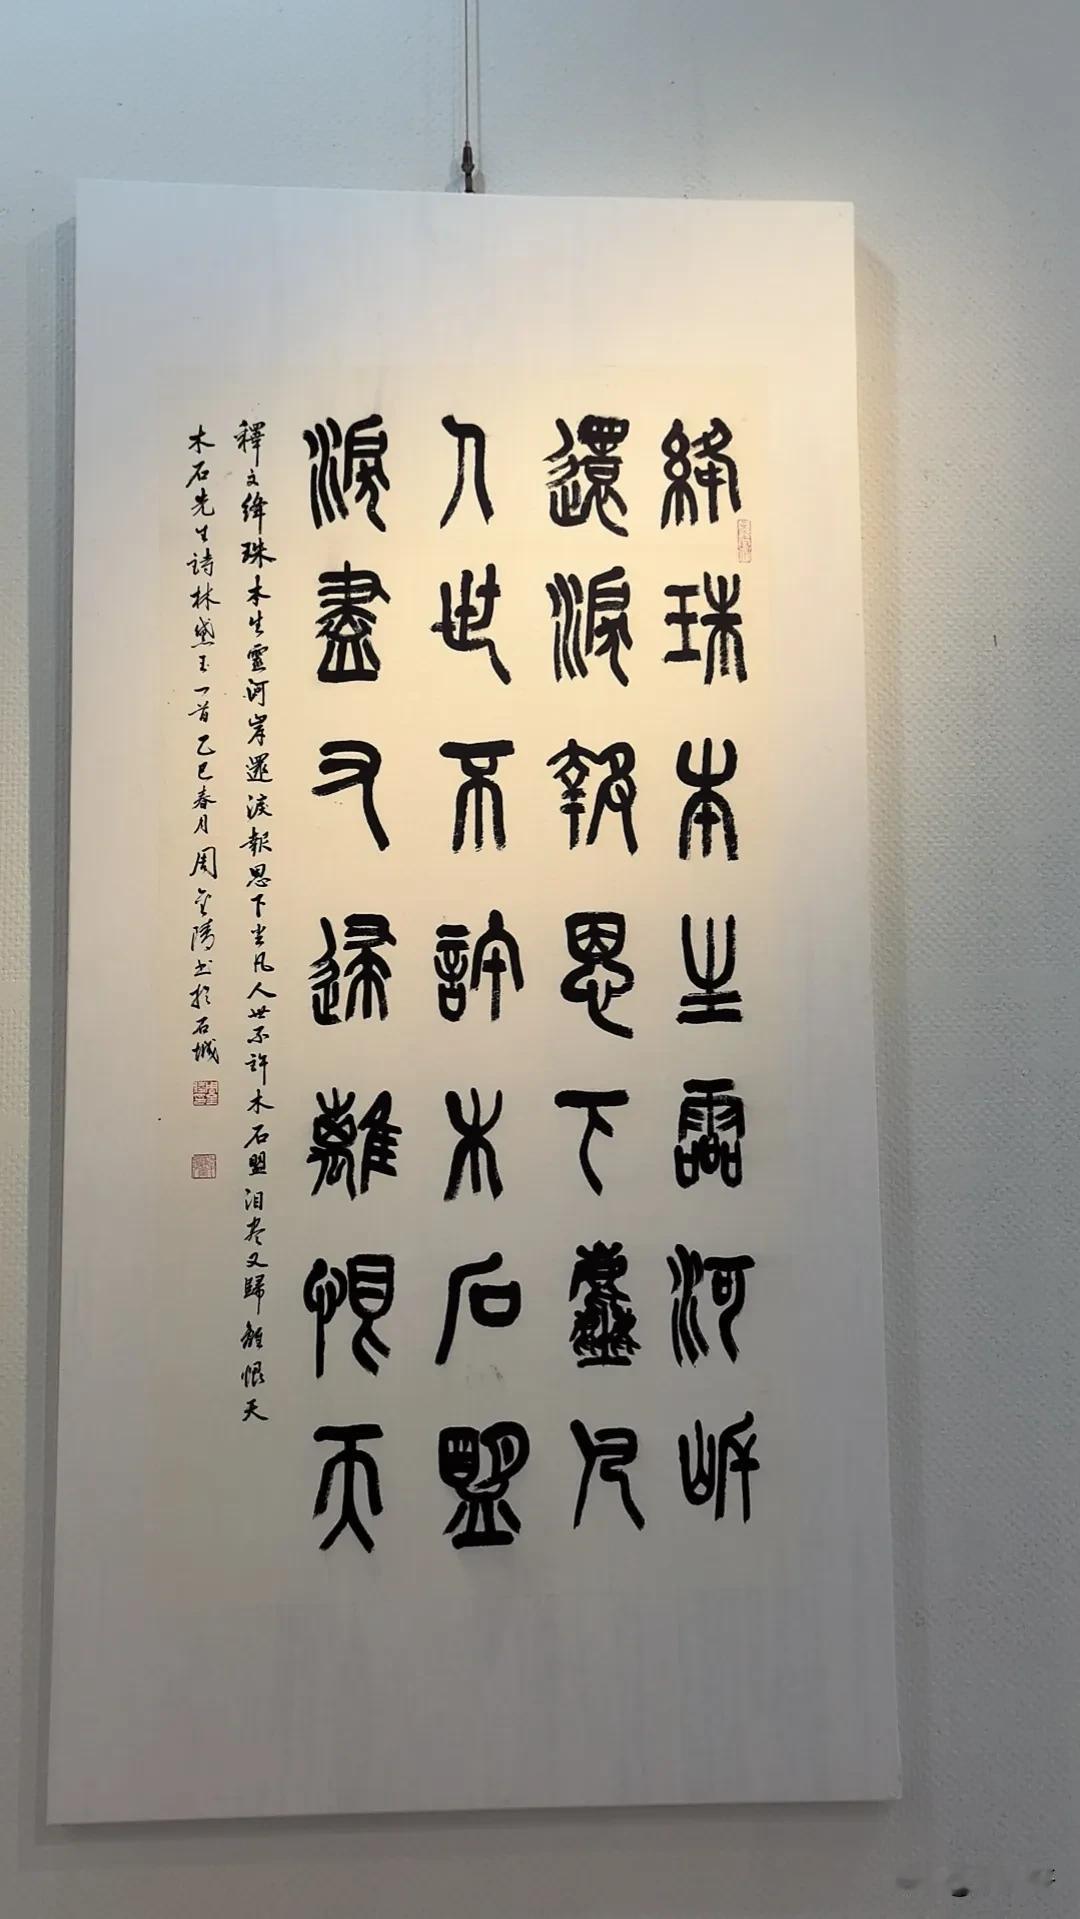 絳珠本生靈河岸
還淚報恩下塵凡
人世不許木石盟
淚盡又歸離恨天
釋文絳珠本生靈河岸還淚報恩下尘凡人世不許木石盟泪尽又歸離恨天
木石先生詩林黛玉一首乙巳春月周金陵书於石城